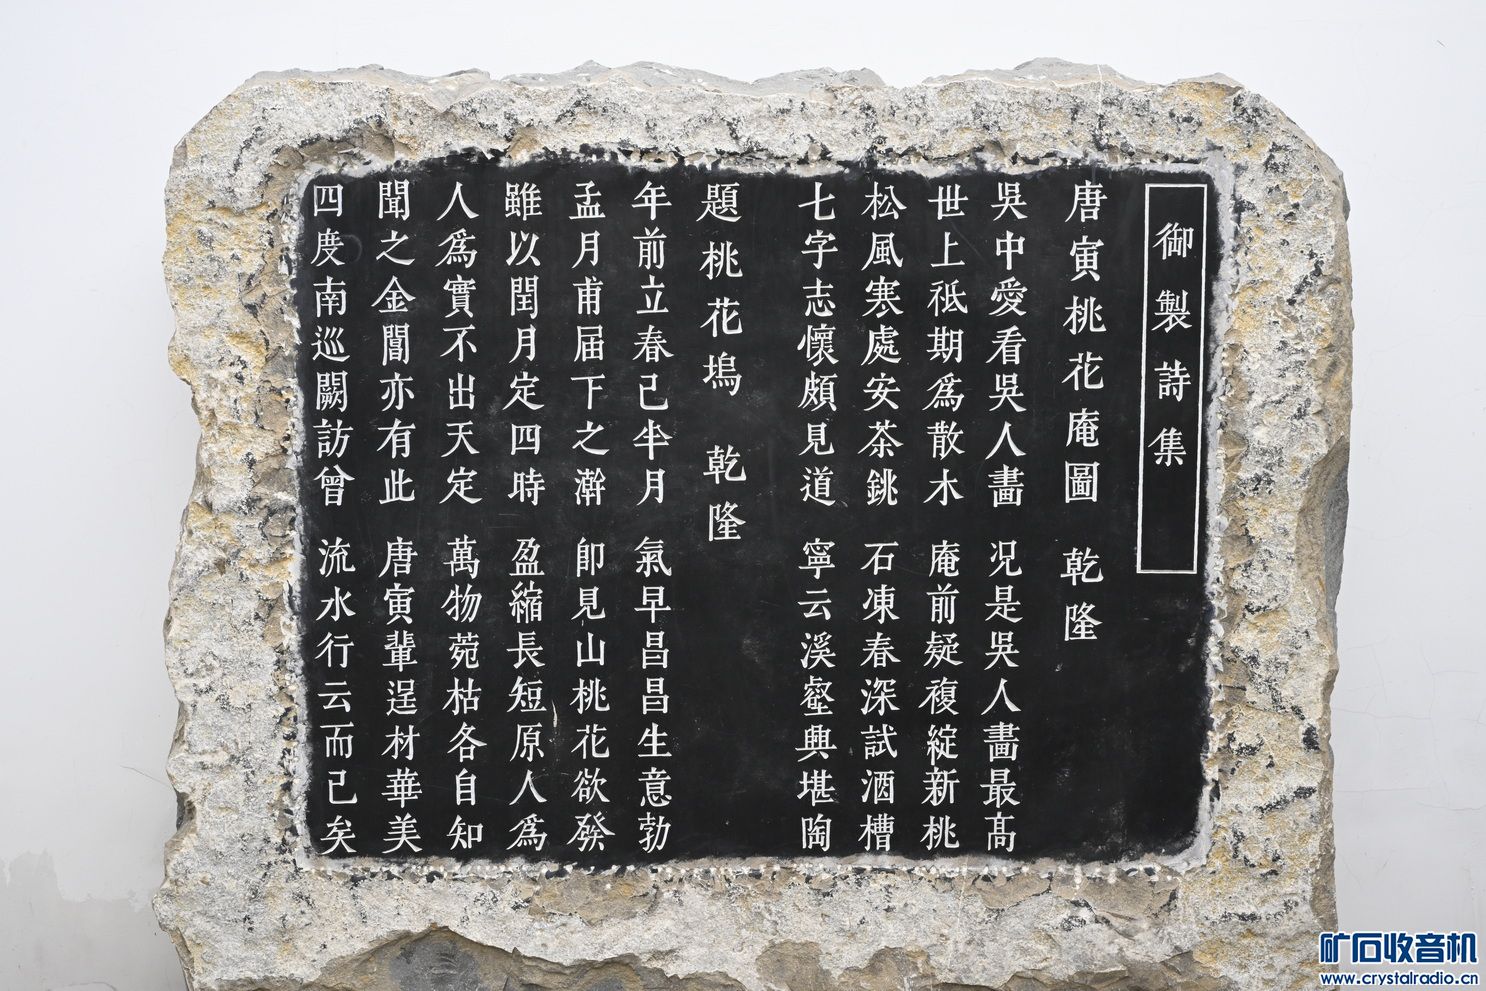 御製詩集
唐寅桃花庵圖 乾隆
吳中愛看吳人畵 况是吳人畵最高
世上祗期爲散木 庵前疑複綻新桃
松風寒處安茶銚 石凍春深試酒槽
七字志懷頗見道 寧云溪壑興堪陶
題桃花塢 乾隆
年前立春已半月 氣早昌昌生意勃
孟月甫届下之澣 卽見山桃花欲發
雖以閏月定四時 盈縮長短原人爲
人爲實不出天定 萬物菀枯各自知
聞之金閶亦有此 唐寅輩逞材華美
四度南巡闕訪曾 流水行云而已矣
矿石收音机
www.crystalradio.cn